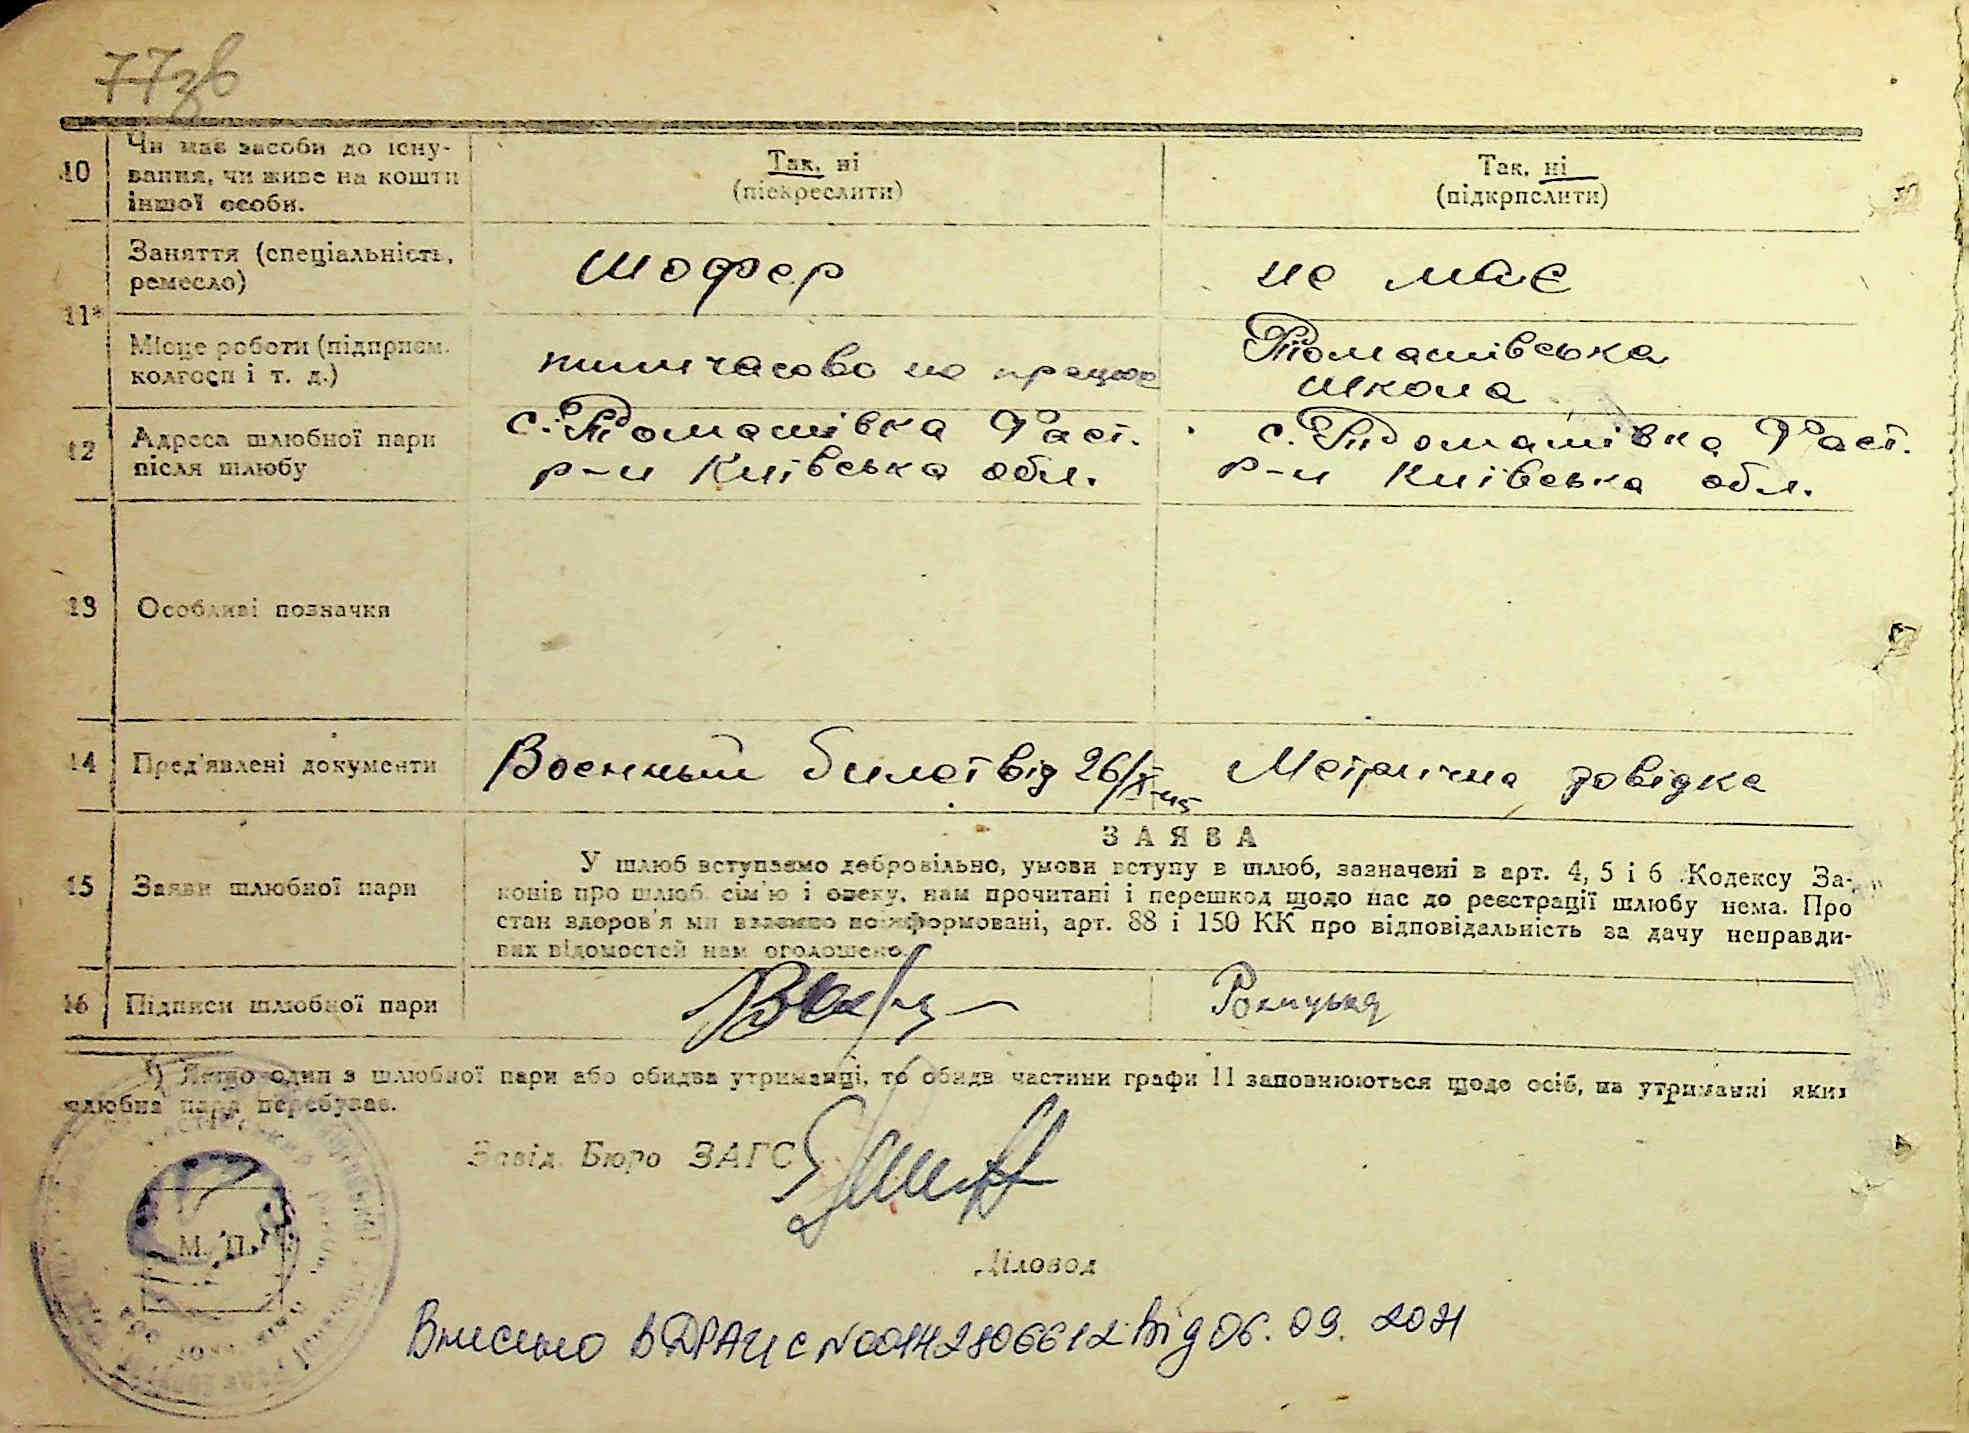 77зв
10
Чи має засоби до існу-
вання, чи живе на кошти
іншої особи.
Так, ні
(піскреслити)
Так, ні
(підкрпслити)
11*
Заняття (спеціальність,
ремесло)
шофер
не має
Місце роботи (підприєм.
колгосп і т. д.)
тимчасово не працює
Томашівська
школа
12
Адреса шлюбної пари
після шлюбу
с. Томашівка Фаст.
р-н Київська обл.
с. Томашівка Фаст.
р-н Київська обл.
13
Особливі позначки
14
Пред'явлені документи
Военный билет від 26/X-45
Метрична довідка
15
Заяви шлюбної пари
ЗАЯВА
У шлюб вступаємо добровільно, умови вступу в шлюб, зазначені в арт. 4, 5 і 6 Кодексу За-
конів про шлюб сім'ю і опеку, нам прочитані і перешкод щодо нас до реєстрації шлюбу нема. Про
стан здоров'я ми взаємно поінформовані, арт. 88 і 150 КК про відповідальність за дачу неправди-
вих відомостей нам оголошено.
16
Підписи шлюбної пари
*) Якщо один з шлюбної пари або обидва утриманці, то обидв частини графи 11 заповнюються щодо осіб, на утриманні яких
шлюбна пара перебуває.
Завід. Бюро ЗАГС
М. П.
Діловод
Внесено в ДРАЦС №00142806612 від 06.09.2021